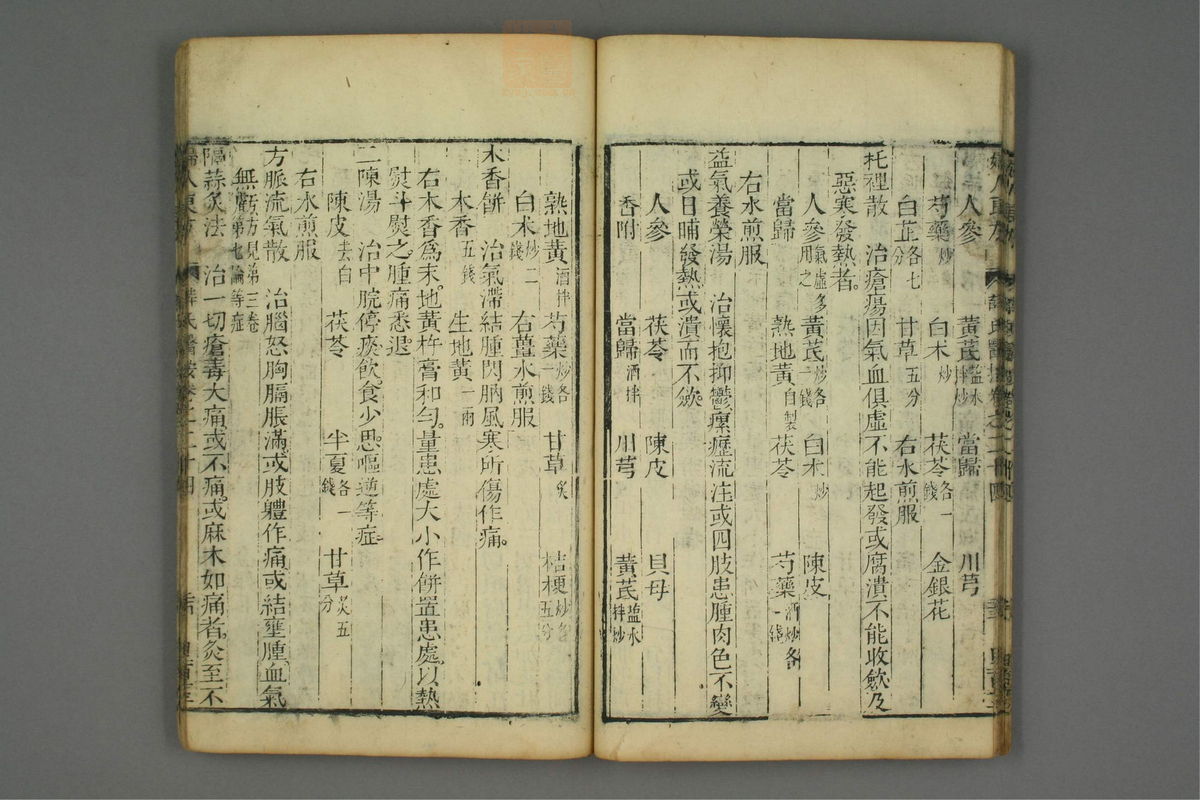 人參 黃芪鹽水拌炒 當歸 川芎
芍藥炒 白朮炒 茯苓各一錢 金銀花
白芷各七分 甘草五分 右水煎服
托裡散 治瘡瘍因氣血俱虛不能起發或腐潰不能收歛及
惡寒發熱者
人參氣虛多用之 黃芪炒各一錢 白朮炒 陳皮
當歸 熟地黃自製 茯苓 芍藥酒炒各一錢
右水煎服
益氣養榮湯 治懷抱抑鬱瘰癧流注或四肢患腫肉色不變
或日晡發熱或潰而不歛
人參 茯苓 陳皮 貝母
香附 當歸酒拌 川芎 黃芪鹽水拌炒
熟地黃酒拌 芍藥炒各一錢 甘草炙 桔梗炒各五分
白朮炒二錢 右薑水煎服
木香餅 治氣滯結腫閃肭風寒所傷作痛
木香五錢 生地黃一兩
右木香爲末地黃杵膏和勻量患處大小作餅置患處以熱
熨斗熨之腫痛悉退
二陳湯 治中脘停痰飲食少思嘔逆等症
陳皮去白 茯苓 半夏各一錢 甘草炙五分
右水煎服
方脈流氣散 治腦怒胸膈脹滿或肢體作痛或結壅腫血氣
無虧方見第三卷第七論等症
隔蒜灸法 治一切瘡毒大痛或不痛或麻木如痛者灸至不